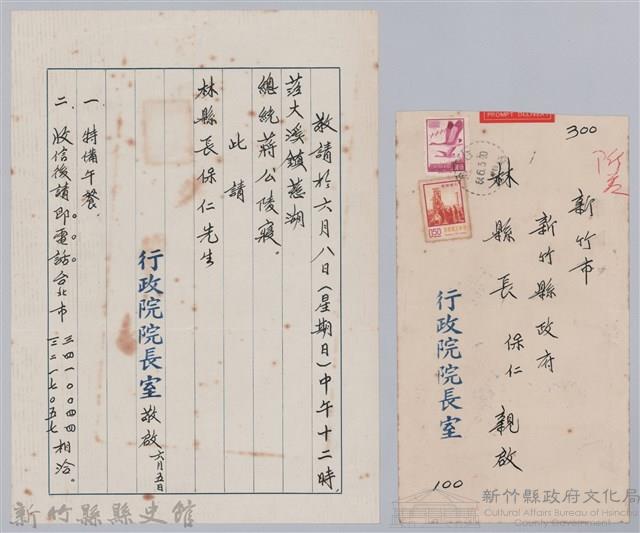 敬請於六月八日(星期日)中午十二時,
蒞大溪鎮慈湖
總統蔣公陵寢。
此請
林縣長保仁先生
行政院院長室 敬啟 六月五日
一、特備午餐。
二、收信後請即電話台北市 三四一〇〇四四 三二一七〇五七 相洽。
新竹縣縣史館
PROMPT DELIVERY
300
新竹市
新竹縣政府
林縣長 保仁 親啟
行政院院長室
100
新竹縣政府文化局
Cultural Affairs Bureau of Hsinchu
County Government